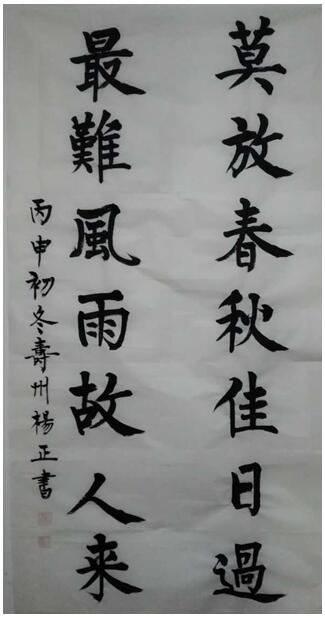 莫放春秋佳日過
最難風雨故人来
丙申初冬壽州楊正書